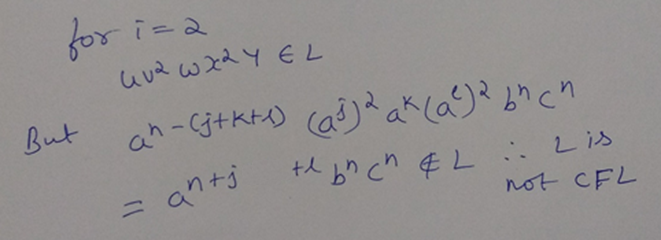 for i = 2
uv² wx² y ∈ L
But a^{n-(j+k+l)} (a^j)² a^k (a^l)² b^n c^n
= a^{n+j +l} b^n c^n ∉ L ∴ L is
not CFL